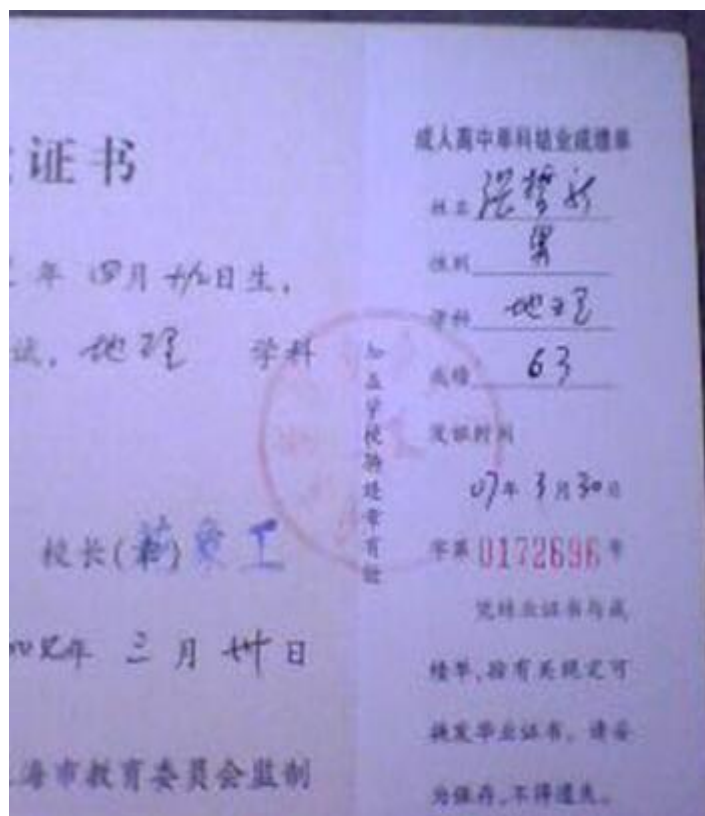 证书
年 四月 日生,
试, 地理 学科
校长( )
年 三月 卅日
海市教育委员会监制
加盖学校钢印章有效
成人高中单科结业成绩单
姓名 张哲新
性别 男
学科 地理
成绩 63
发证时间
07年3月30日
字第0172696号
凭结业证书与成
绩单,按有关规定可
换发毕业证书。请妥
为保存,不得遗失。